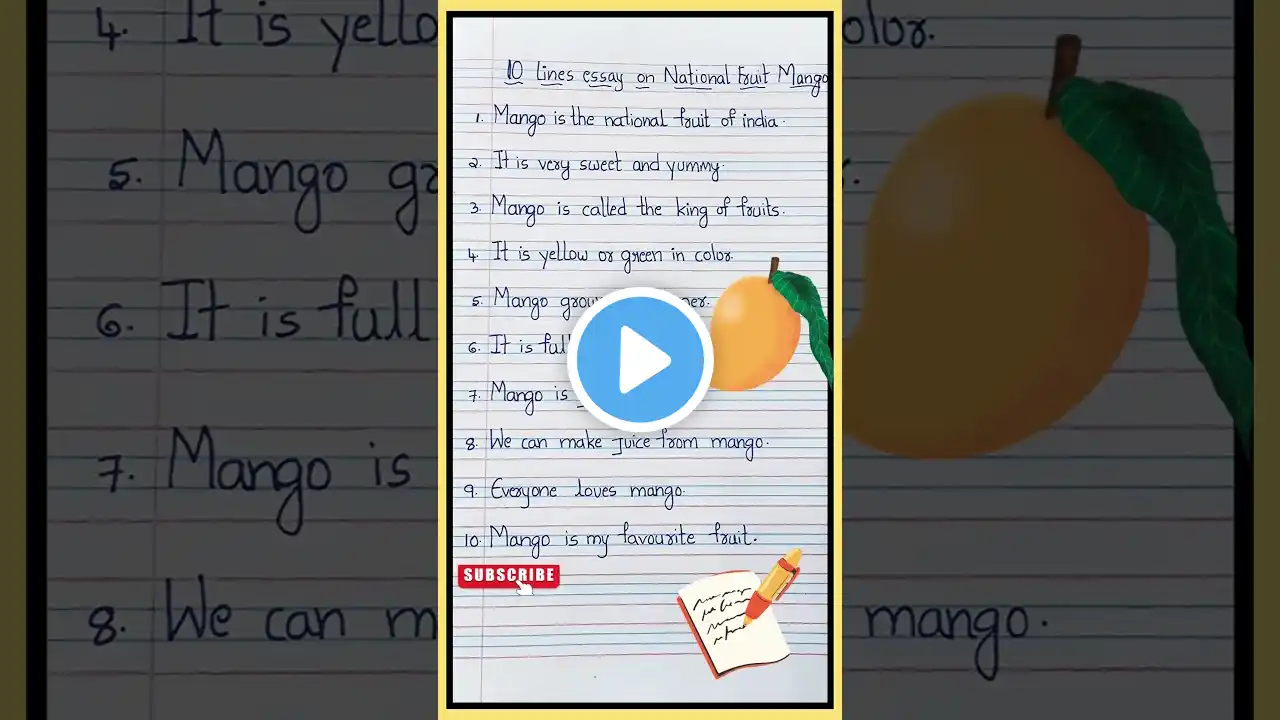 10 lines essay on National Fruit Mango
1. Mango is the national fruit of india.
2. It is very sweet and yummy.
3. Mango is called the king of fruits.
4. It is yellow or green in color.
5. Mango
6. It is
7. Mango is
8. We can make Juice from mango.
9. Everyone loves mango.
10. Mango is my favourite fruit.
SUBSCRIBE